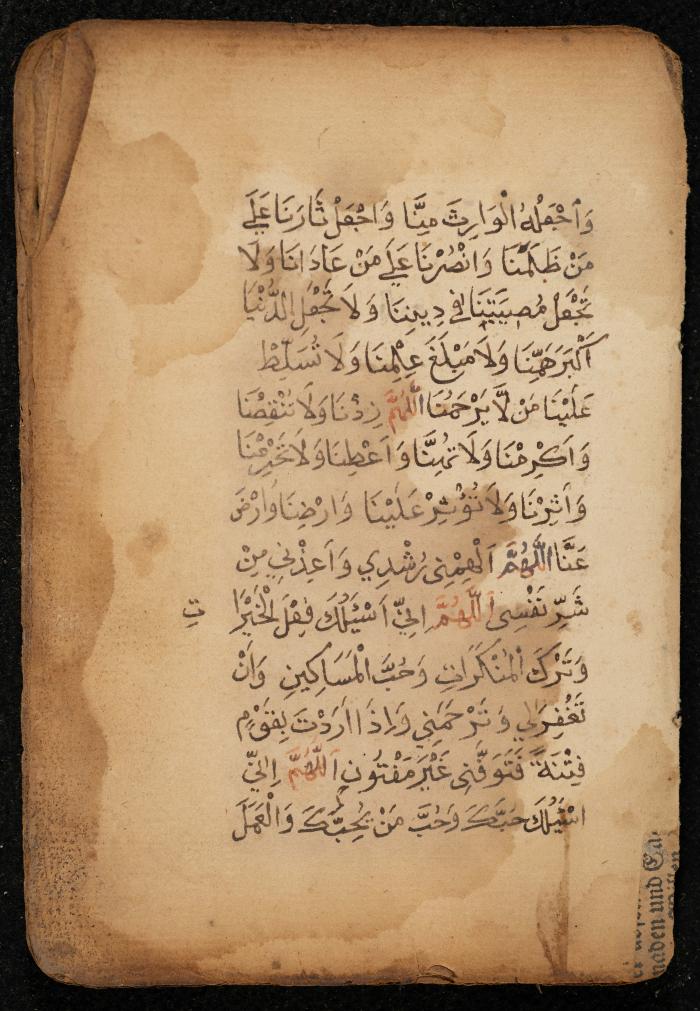 وَٱجْعَلْهُ الْوَارِثَ مِنَّا وَاجْعَلْ ثَارَنَا عَلَي
مَنْ ظَلَمَنَا وَانْصُرْنَا عَلَي مَنْ عَادَانَا وَلَا
تَجْعَلْ مُصِيبَتِنَا فِي دِيِنِنَا وَلَا تَجْعَلِ الدُّنْيَا
اَكْبَرَ هَمِّنَا وَلَا مَبْلَغَ عِلْمِنَا وَلَا تُسَلِّطْ
عَلَيْنَا مَنْ لَّا يَرْحَمُنَا اَللّٰهُمَّ زِدْنَا وَلَا تَنْقِصْنَا
وَاَكْرِمْنَا وَلَا تُهِنَّا وَاَعْطِنَا وَلَا تَحْرِمْنَا
وَاٰثِرْنَا وَلَا تُؤْثِرْ عَلَيْنَا وَارْضِنَا وَارْضَ
عَنَّا اَللّٰهُمَّ اَلْهِمْنِي رُشْدِي وَاَعِذْنِي مِنْ
شَرِّ نَفْسِى اَللّٰهُمَّ اِنِّيْ اَسْئَلُكَ فِعْلَ الْخَيْرَا
تِ
وَتَرْكَ الْمُنْكَرَاتِ وَحُبَّ الْمَسَاكِينِ وَاَنْ
تَغْفِرَلِي وَتَرْحَمَنِي وَاِذَا اَرَدْتَ بِقَوْمٍ
فِتْنَةً فَتَوَفَّنِى غَيْرَ مَفْتُونٍ اَللّٰهُمَّ اِنِّيْ
اَسْئَلُكَ حُبَّكَ وَحُبَّ مَنْ يُحِبُّكَ وَالْعَمَلَ
naden und